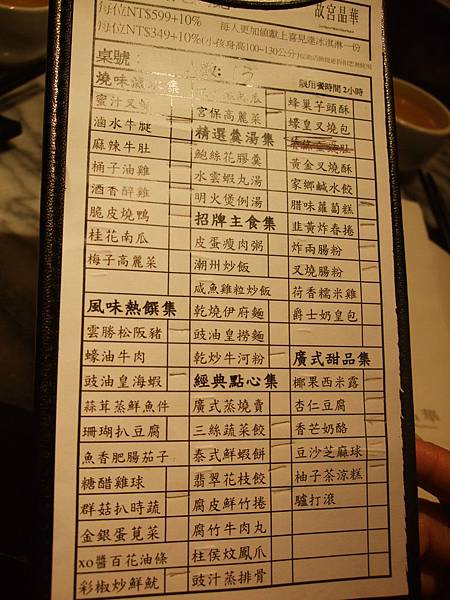 故宮晶華
每位NT$599+10%
每人更加値獻上喜見達冰淇淋一份
每位NT$349+10%(小孩身高100~130公分)
桌號
限用餐時間2小時
燒味滷水集
蜜汁叉燒
滷水牛腱
麻辣牛肚
桶子油雞
酒香醉雞
脆皮燒鴨
桂花南瓜
梅子高麗菜
風味熱饌集
雲勝松阪豬
蠔油牛肉
豉油皇海蝦
蒜茸蒸鮮魚件
珊瑚扒豆腐
魚香肥腸茄子
糖醋雞球
群菇扒時蔬
金銀蛋莧菜
xo醬百花油條
彩椒炒鮮魷
宮保高麗菜
精選羹湯集
鮑絲花膠羹
水雲蝦丸湯
明火煲例湯
招牌主食集
皮蛋瘦肉粥
潮州炒飯
咸魚雞粒炒飯
乾燒伊府麵
豉油皇撈麵
乾炒牛河粉
經典點心集
廣式蒸燒賣
三絲蔬菜餃
泰式鮮蝦餅
翡翠花枝餃
腐皮鮮竹捲
腐竹牛肉丸
柱侯炆鳳爪
豉汁蒸排骨
蜂巢芋頭酥
蠔皇叉燒包
黃金叉燒酥
家鄉鹹水餃
腊味蘿蔔糕
韭黃炸春捲
炸兩腸粉
叉燒腸粉
荷香糯米雞
爵士奶皇包
廣式甜品集
椰果西米露
杏仁豆腐
香芒奶酪
豆沙芝麻球
柚子茶涼糕
驢打滾